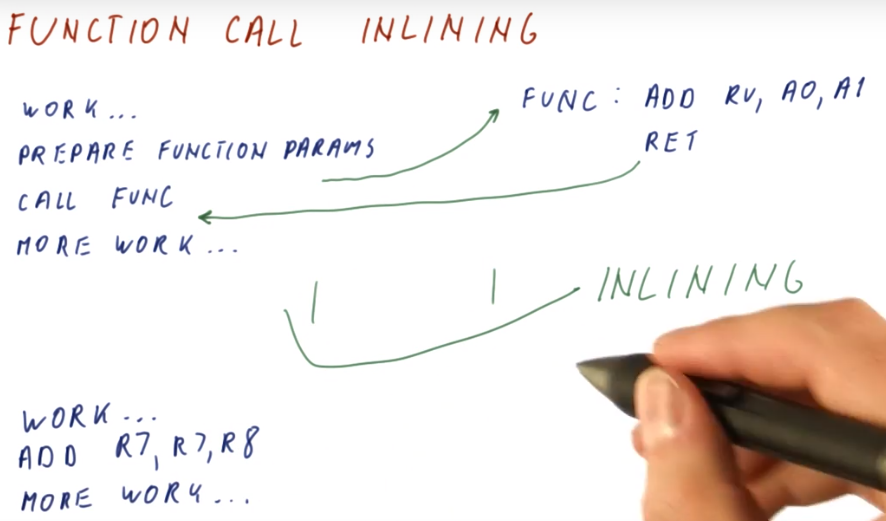 FUNCTION CALL INLINING
WORK...
PREPARE FUNCTION PARAMS
CALL FUNC
MORE WORK...
FUNC: ADD RV, A0, A1
RET
INLINING
WORK...
ADD R7, R7, R8
MORE WORK...